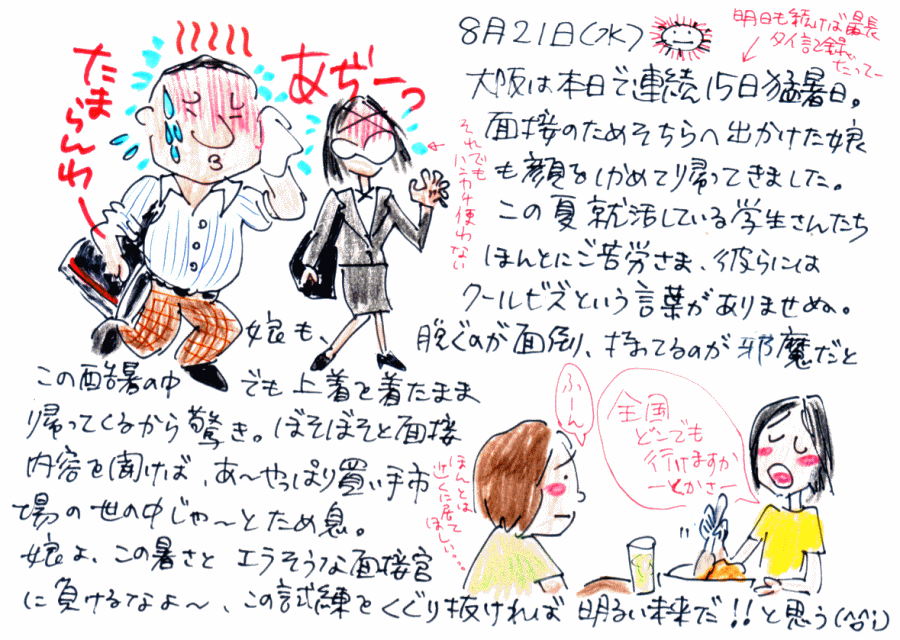 8月21日(水)
明日も続けば最長
タイ記録
だってー
大阪は本日で連続15日猛暑日。
面接のためそちらへ出かけた娘
も顔をしかめて帰ってきました。
この夏就活している学生さんたち
ほんとにご苦労さま、彼らには
クールビズという言葉がありませぬ。
娘も、脱ぐのが面倒、持ってるのが邪魔だと
この酷暑の中でも上着を着たまま
帰ってくるから驚き。ぼそぼそと面接
内容を聞けば、あ〜やっぱり買い手市
場の世の中じゃ〜とため息。
娘よ、この暑さと エラそうな面接官
に負けるなよ〜、この試練をくぐり抜ければ 明るい未来だ!!と思う(^^;)
たまらんわー
あぢーっ
それでも
ハンカチ使わない
ふーん
全国
どこでも
行けますか
ーとかさー
ほんとは
近くに居て
ほしい・・・